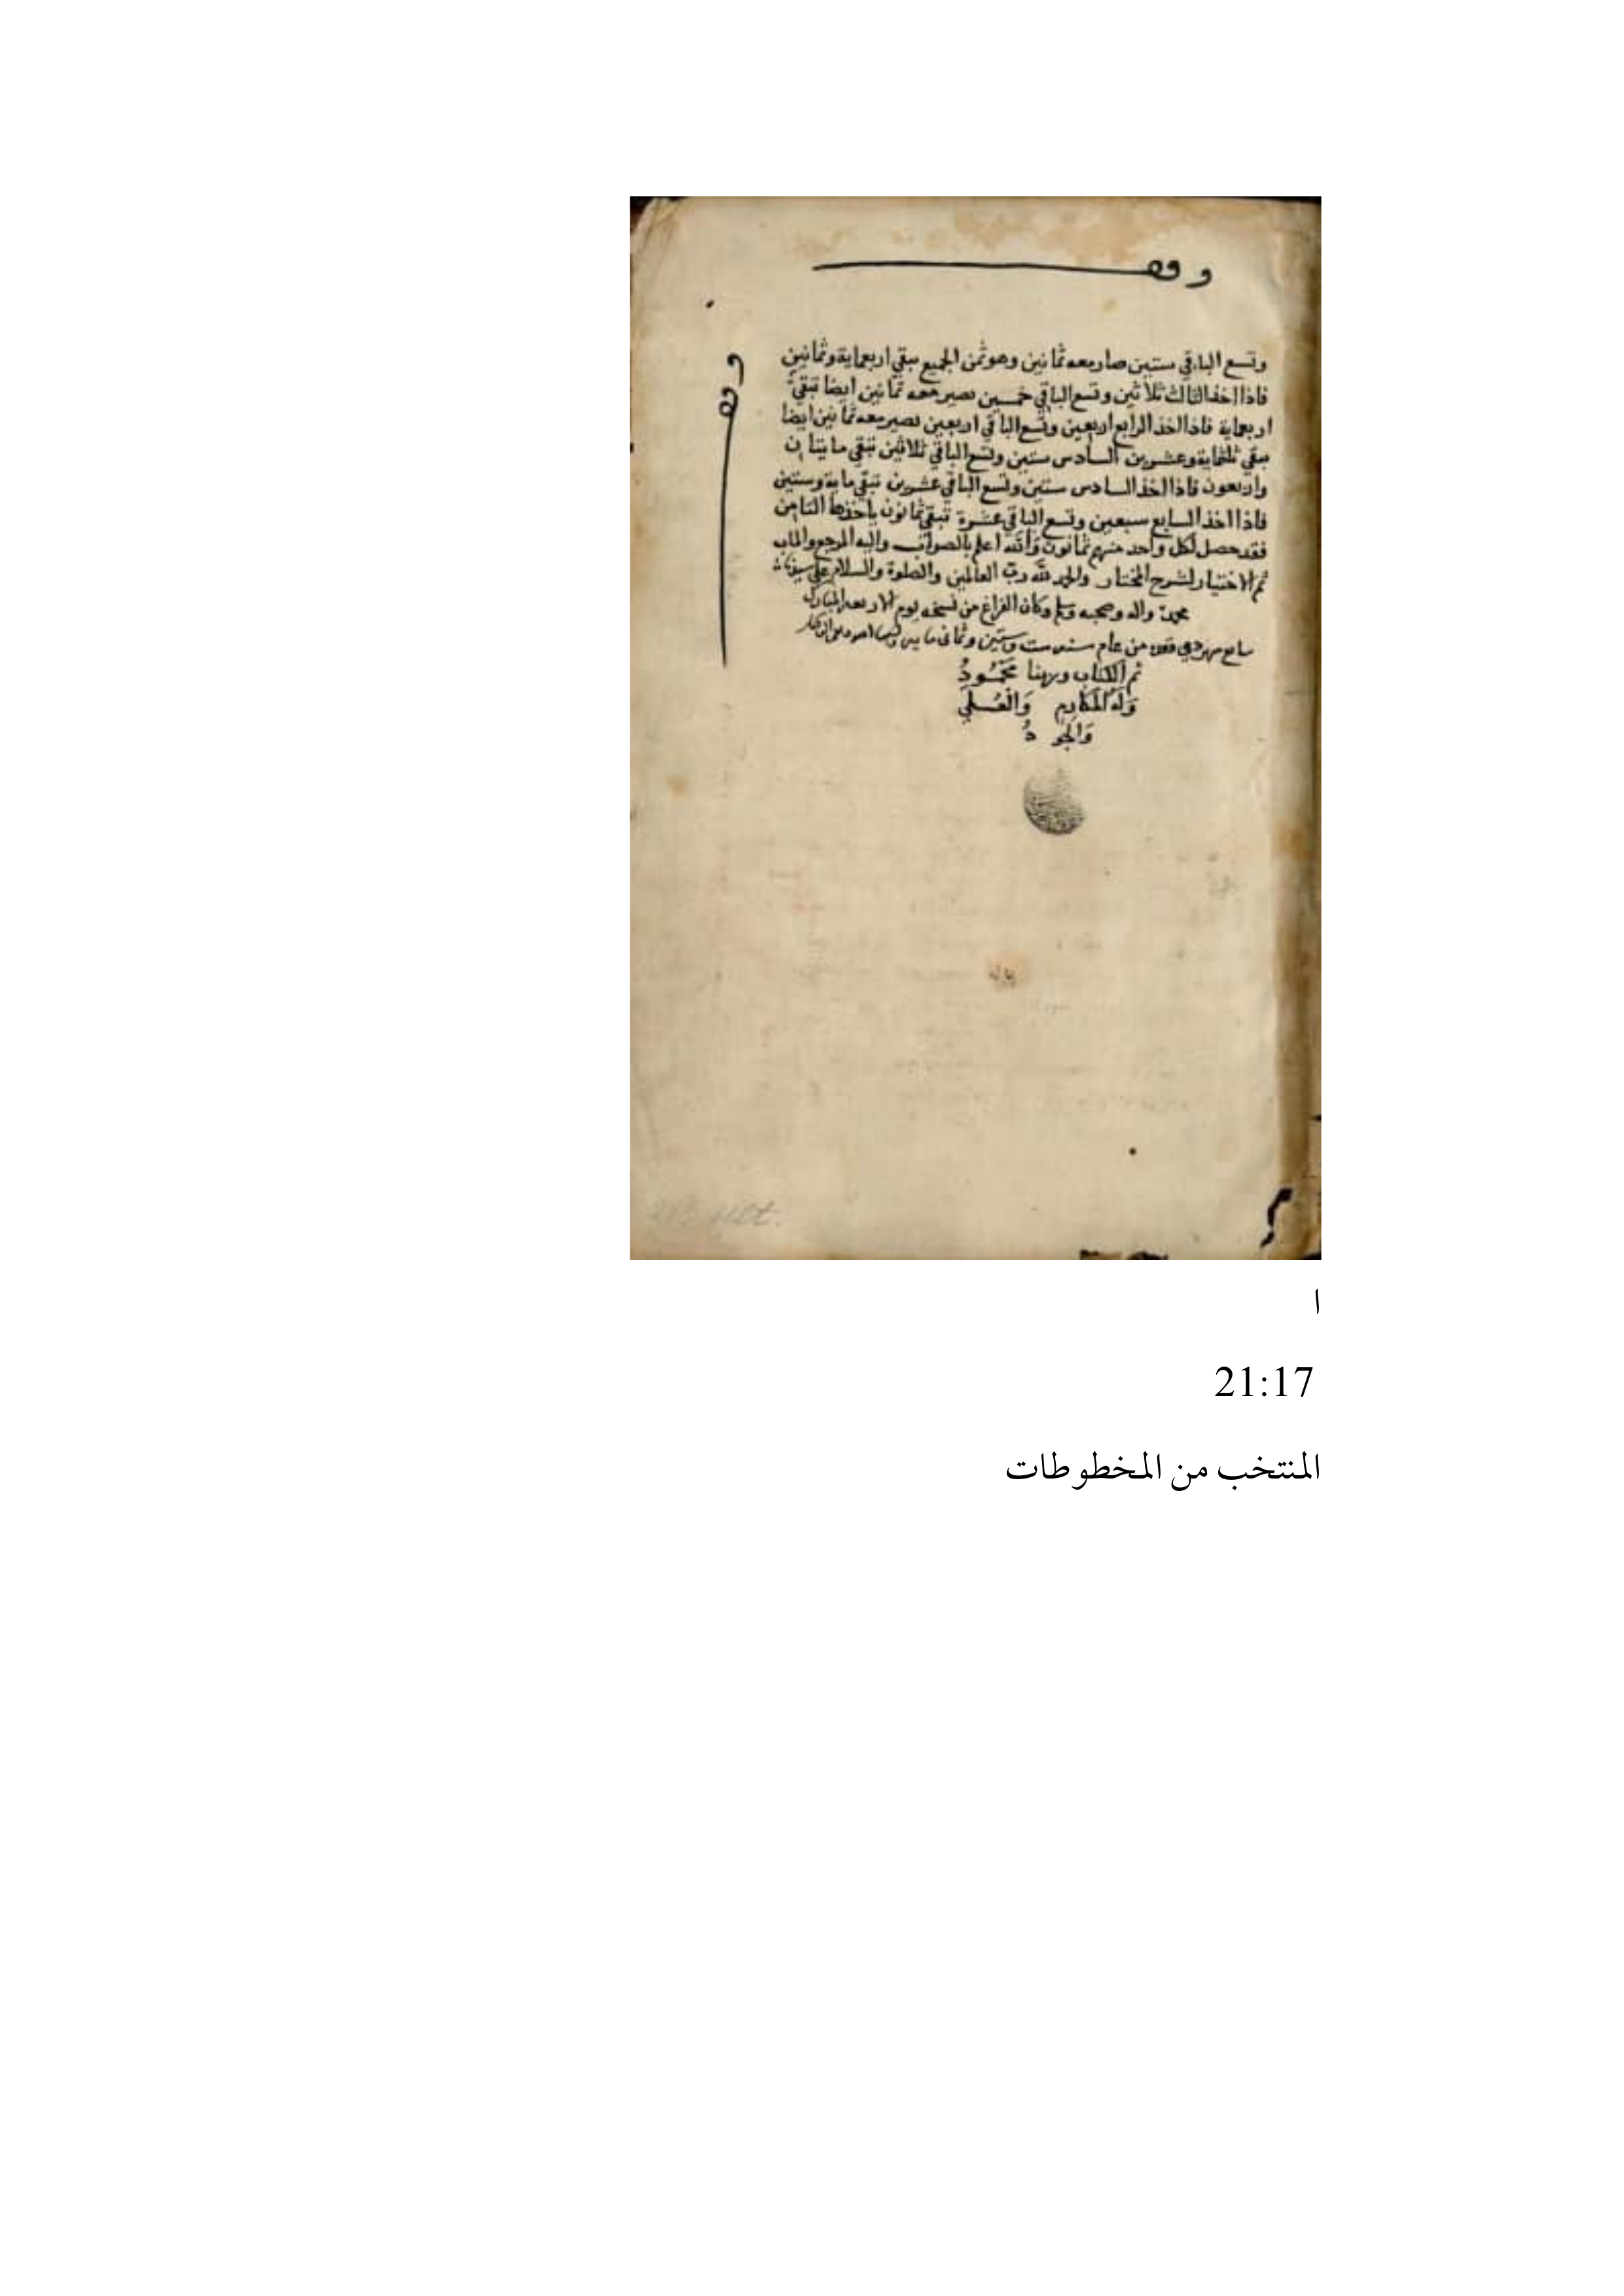 وقف
وقف
وتسع الباقي ستين صار معه ثمانين وهو ثمن الجميع يبقي اربعماية وثمانين
فاذا اخذ الثالث ثلاثين وتسع الباقي خمسين يصير معه ثمانين ايضا تبقي
اربعماية فاذا اخذ الرابع اربعين وتسع الباقي اربعين يصير معه ثمانين ايضا
يبقي ثلثماية وعشرين السادس ستين وتسع الباقي ثلاثين تبقي مايتان
واربعون فاذا اخذ السادس ستين وتسع الباقي عشرين تبقي ماية وستين
فاذا اخذ السابع سبعين وتسع الباقي عشرة تبقي ثمانون ياخذها الثامن
فقد حصل لكل واحد منهم ثمانون والله اعلم بالصواب واليه المرجع والماب
تم الاختيار لشرح المختار والحمد لله رب العالمين والصلوة والسلام علي سيدنا
محمد واله وصحبه وسلم وكان الفراغ من نسخه يوم الاربعا المبارك
سابع من عام سنه ست وستين وثماني مايه
تم الكتاب وربنا مَحْمُودُ
وَلَهُ المَكَارِم وَالْعُلَي
وَالجُودُ
ا
21:17
المنتخب من المخطوطات